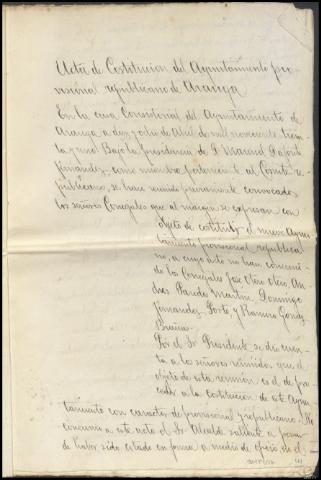 Acta de Costitucion del Ayuntamiento pro
visional republicano de Aranga
En la casa Consistorial del Ayuntamiento de
Aranga a diez y ocho de Abril de mil novecientos trein
ta y uno. Bajo la presidencia de D. Manuel
Fernandez, como miembro perteneciente al Comité re
publicano, se han reunido previamente convocados
los señores Concejales que al margen se expresan con
objeto de costituir el nuevo Ayun
tamiento provisional republica
no, a cuyo acto no han concurri
do los Concejales José Otero Otero, An
drés Pardo Martin, Domingo
Fernandez, y Ramiro
Por el Sr Presidente se dio cuen
ta a los señores reunidos que el
objeto de esta reunion es el de pro
ceder a la costitucion de este Ayun
tamiento con caracter de provisional y republicano. No
concurrio a este acto el Sr Alcalde saliente a pesar
de haber sido citado en forma a medio de oficio, de el